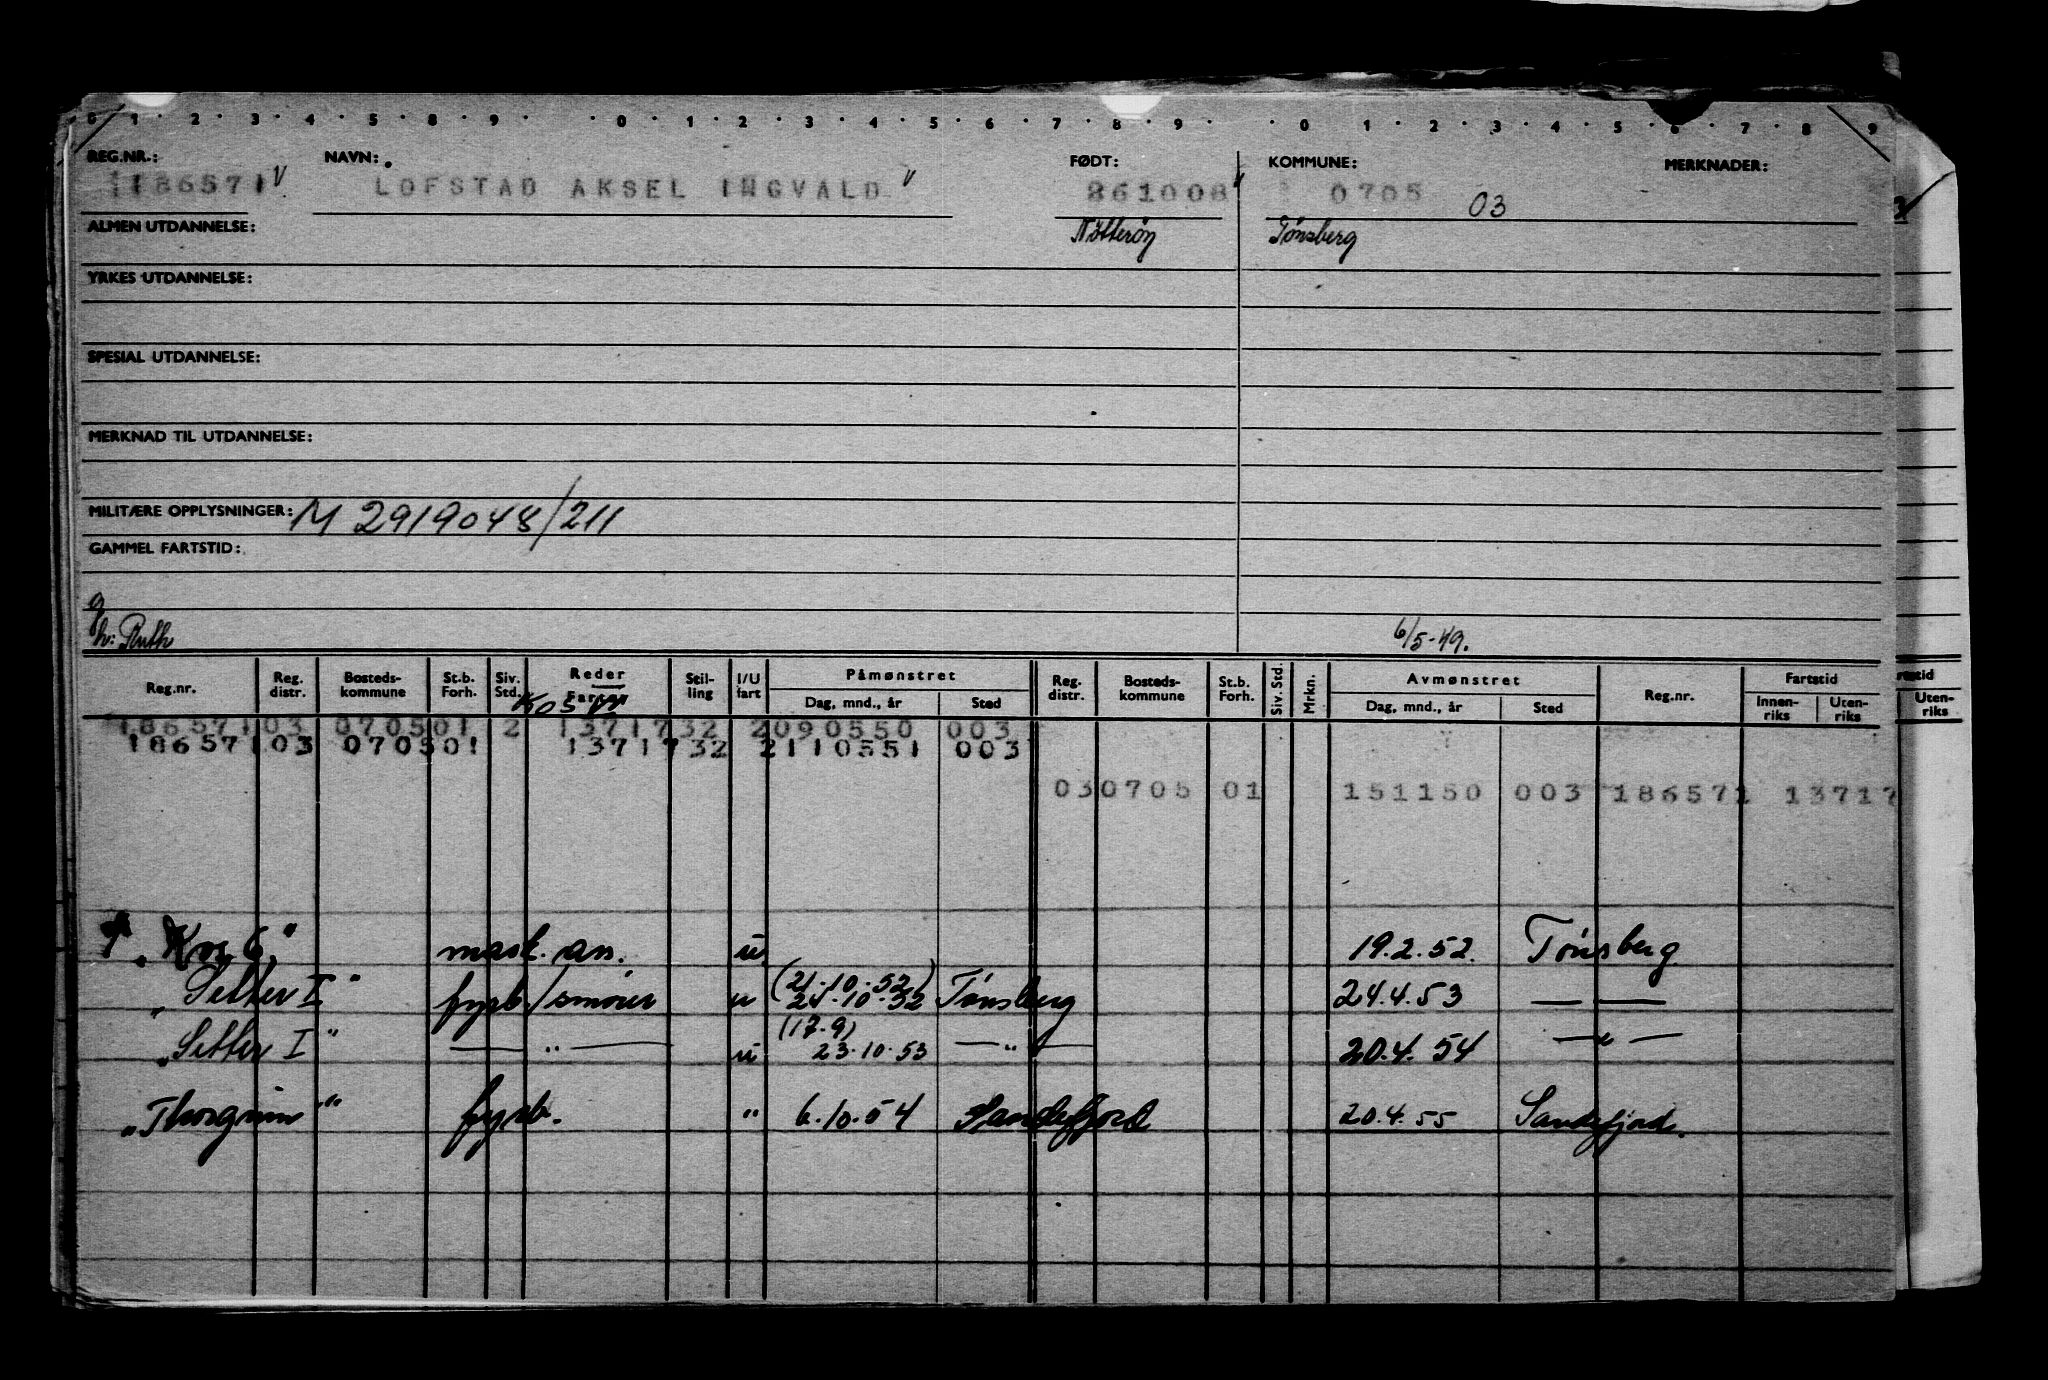 0 1 2 3 4 5 8 9 0 1 2 3 4 5 6 7 8 9 0 1 2 3 4 5 6 7 8 9
REG.NR.: NAVN: FØDT: KOMMUNE: MERKNADER:
186571 LOFSTAD AKSEL INGVALD 261008 0705 03
ALMEN UTDANNELSE: Nötteröy Tönsberg
YRKES UTDANNELSE:
SPESIAL UTDANNELSE:
MERKNAD TIL UTDANNELSE:
MILITÆRE OPPLYSNINGER: M 2919048/211
GAMMEL FARTSTID:
g
h: Ruth 6/5-49.
Reg.nr. Reg. distr. Bosteds-kommune St.b. Forh. Siv. Std. Reder Fartøy Stil-ling I/U fart Påmønstret Dag, mnd., år Sted Reg. distr. Bosteds-kommune St.b. Forh. Siv. Std. Mrkn. Avmønstret Dag, mnd., år Sted Reg.nr. Fartstid Innen-riks Uten-riks
186571 03 0705 01 2 13717 32 2 090550 003
186571 03 0705 01 13717 32 2 110551 003
03 0705 01 151150 003 186571 13717
"Kos 6" mask. ass. u 19.2.52. Tönsberg
"Setter I" fyrb./smører u (21.10.52) 24.10.52 Tönsberg 24.4.53 — —
"Setter I" — " — u (17.9) 23.10.53 — " — 20.4.54 — " —
"Thorgrim" fyrb. " 6.10.54 Sandefjord 20.4.55 Sandefjord.
Uten-riks